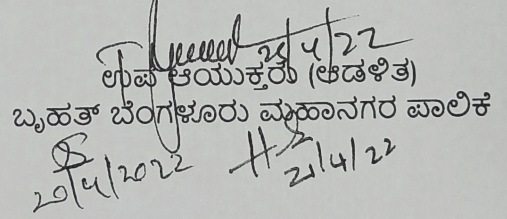 25/4/22
ಉಪ ಆಯುಕ್ತರು (ಆಡಳಿತ)
ಬೃಹತ್ ಬೆಂಗಳೂರು ಮಹಾನಗರ ಪಾಲಿಕೆ
20/4/2022 21/4/22